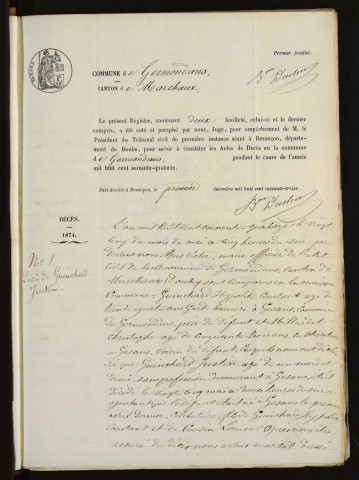 Premier feuillet.
COMMUNE d e Germondans,
CANTON d e Marchaux,
Le présent Registre, contenant deux feuillets, celui-ci et le dernier
compris, a été coté et paraphé par nous, Juge, pour empêchement de M. le
Président du Tribunal civil de première instance séant à Besançon, départe-
ment du Doubs, pour servir à consister les Actes de Décès en la commune
d e Germondans, pendant le cours de l'année
mil huit cent soixante-quatorze.
Fait double à Besançon, le premier décembre mil huit cent soixante-treize.
DÉCÈS.
1874.
N° 1
Décès de Guinchard
Justin
L'an mil huit cent soixante quatorze le vingt
cinq du mois de mai à cinq heures du soir par
devant nous maire officier de l'état
civil de la Commune de Germondans, Canton de
Marchaux (Doubs) sont comparus en la maison
Commune, Guinchard Hypolite Constant age de
trente quatre ans Garde barrière à Gesans, Commune
de Germondans, père du défunt et
Christophe age de cinquante trois ans, cultivateur
à Gesans, voisin du défunt, lesquels nous ont décla
ré que Guinchard Justin age de un mois et
demi sans profession demeurant à Gesans, était
décédé le vingt cinq mai à deux heures du soir,
ajoutant que le défunt était né à Gesans le premier
avril dernier, Célibataire, fils de Guinchard Hypolite
Constant et de Louise. Après nous être
assuré du décès nous avons dressé